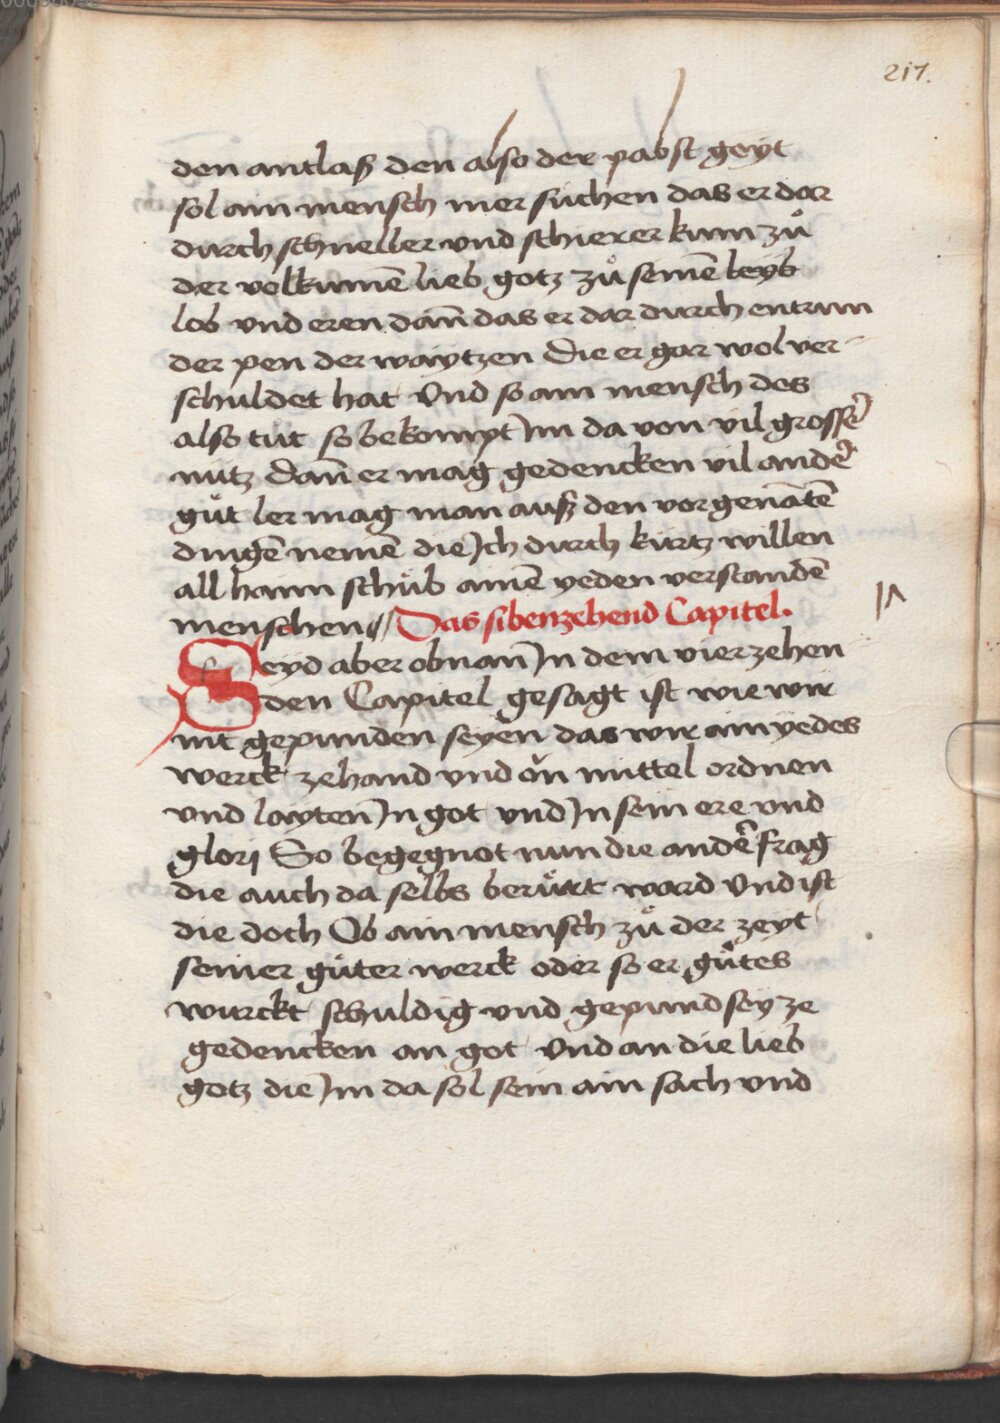 217.
den antlaß den also der pabst geyt
sol ain mensch mer süchen das er dar
durch schneller vnd schierer kum zů
der volkumē lieb gotz zů seinē leyb
lob vnd eren dañ das er dar durch entrinn
der pen der waytzen die er gar wol ver-
schuldet hat Vnd so ain mensch des
also tut so bekompt Im da von vil grosser
nutz dañ er mag gedencken vil ander
güt ler mag man auß den vorgenātē
dingē nemē die Ich durch kürtz willen
all haim schüb ainē yeden verstandē
menschen // Das sibenzehend Capitel.
Seyd aber obnan In dem vierzehen
den Capitel gesagt ist wie wir
nit gepunden seyen das wir ain yedes
werck zehand vnd on mittel ordnen
vnd layten In got vnd In sein ere vnd
glori So begegnot nun die ander frag
die auch da selbs berürt ward Vnd ist
die doch Ob ain mensch zů der zeyt
seiner güter werck oder so er gůtes
würckt schuldig vnd gepund sey ze
gedencken an got Vnd an die lieb
gotz die Im da sol sein ain sach vnd